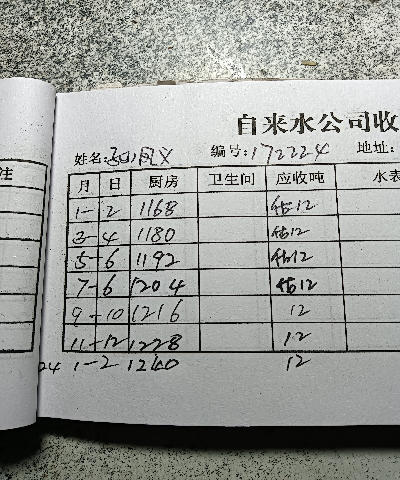 自来水公司收
姓名: 编号:172224 地址:
注
月 日 厨房 卫生间 应收吨 水表
1-2 1168 估12
3-4 1180 估12
5-6 1192 估12
7-6 1204 估12
9-10 1216 12
11-12 1228 12
24 1-2 1240 12